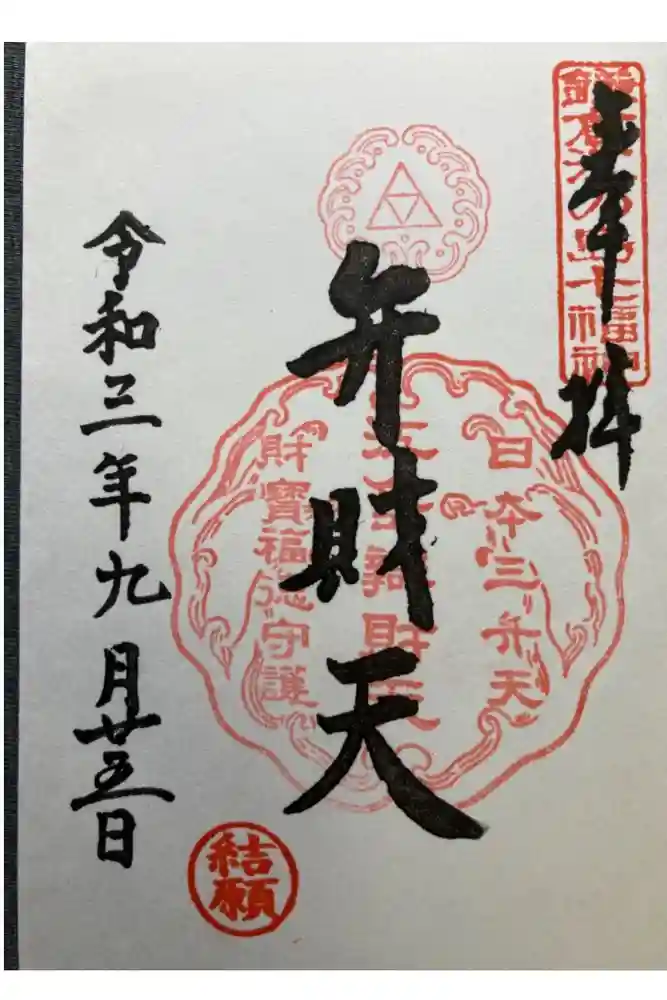 奉拝
鎌倉江の島七福神
日本三弁天
弁財天
財寶福徳守護
令和三年九月廿五日
結願